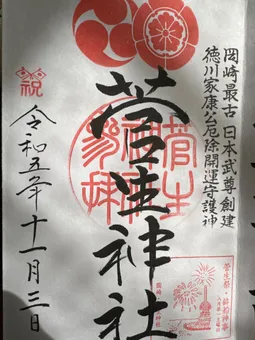 岡崎最古 日本武尊創建
徳川家康公厄除開運守護神
菅生神社
参拝
菅生神社
祝
令和五年十一月三日
菅生祭・鉾船神事